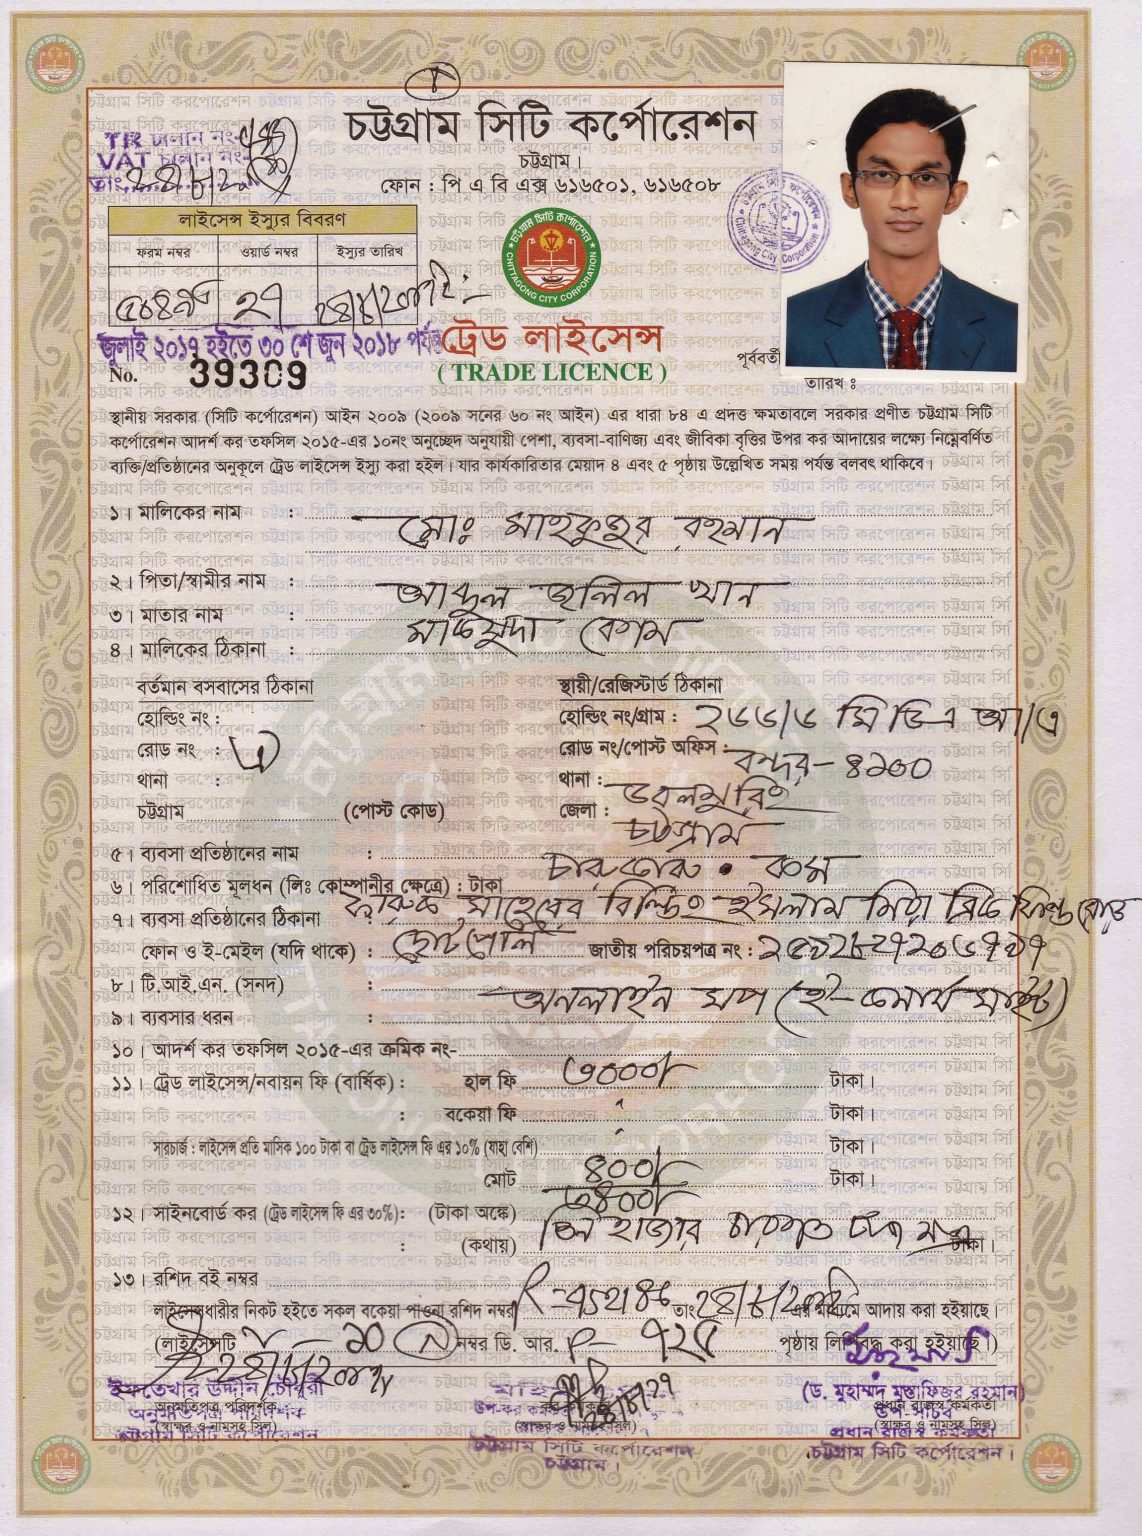 চট্টগ্রাম সিটি কর্পোরেশন
চট্টগ্রাম।
ফোন : পি এ বি এক্স ৬১৬৫০১, ৬১৬৫০৮
TR চালান নং-
VAT চালান নং-
তাং
লাইসেন্স ইস্যুর বিবরণ
ফরম নম্বর ওয়ার্ড নম্বর ইস্যুর তারিখ
২৭
CHITTAGONG CITY CORPORATION
Chittagong City Corporation
জুলাই ২০১৭ হইতে ৩০ শে জুন ২০১৮ পর্যন্ত
ট্রেড লাইসেন্স
(TRADE LICENCE)
No. 39309
পূর্ববর্তী
তারিখ :
স্থানীয় সরকার (সিটি কর্পোরেশন) আইন ২০০৯ (২০০৯ সনের ৬০ নং আইন) এর ধারা ৮৪ এ প্রদত্ত ক্ষমতাবলে সরকার প্রণীত চট্টগ্রাম সিটি
কর্পোরেশন আদর্শ কর তফসিল ২০১৫-এর ১০নং অনুচ্ছেদ অনুযায়ী পেশা, ব্যবসা-বাণিজ্য এবং জীবিকা বৃত্তির উপর কর আদায়ের লক্ষ্যে নিম্নেবর্ণিত
ব্যক্তি/প্রতিষ্ঠানের অনুকূলে ট্রেড লাইসেন্স ইস্যু করা হইল। যার কার্যকারিতার মেয়াদ ৪ এবং ৫ পৃষ্ঠায় উল্লেখিত সময় পর্যন্ত বলবৎ থাকিবে।
১। মালিকের নাম : মোঃ রহমান
২। পিতা/স্বামীর নাম : আব্দুল জলিল খান
৩। মাতার নাম : বেগম
৪। মালিকের ঠিকানা :
বর্তমান বসবাসের ঠিকানা স্থায়ী/রেজিস্টার্ড ঠিকানা
হোল্ডিং নং : হোল্ডিং নং/গ্রাম : সিডিএ আ/এ
রোড নং : রোড নং/পোস্ট অফিস : বন্দর- ৪১০০
থানা : থানা : ডবলমুরিং
চট্টগ্রাম (পোস্ট কোড) জেলা : চট্টগ্রাম
৫। ব্যবসা প্রতিষ্ঠানের নাম : চারুতারু . কম
৬। পরিশোধিত মূলধন (লিঃ কোম্পানীর ক্ষেত্রে) : টাকা
৭। ব্যবসা প্রতিষ্ঠানের ঠিকানা ফারুক সাহেবের বিল্ডিং ইসলাম মিয়া ব্রিক ফিল্ড রোড
ফোন ও ই-মেইল (যদি থাকে) : ছোটপোল জাতীয় পরিচয়পত্র নং :
৮। টি.আই.এন. (সনদ) :
৯। ব্যবসার ধরন : অনলাইন সপ (ই-কমার্স সাইট)
১০। আদর্শ কর তফসিল ২০১৫-এর ক্রমিক নং-
১১। ট্রেড লাইসেন্স/নবায়ন ফি (বার্ষিক) : হাল ফি ৩০০০/- টাকা।
: বকেয়া ফি টাকা।
সারচার্জ : লাইসেন্স প্রতি মাসিক ১০০ টাকা বা ট্রেড লাইসেন্স ফি এর ১০% (যাহা বেশি) টাকা।
মোট ৪০০/- টাকা।
১২। সাইনবোর্ড কর (ট্রেড লাইসেন্স ফি এর ৩০%): (টাকা অঙ্কে) ৩৪০০/-
: (কথায়) তিন হাজার চারশত টাকা মাত্র টাকা।
১৩। রশিদ বই নম্বর
লাইসেন্সধারীর নিকট হইতে সকল বকেয়া পাওনা রশিদ নম্বর তাং এর মাধ্যমে আদায় করা হইয়াছে
(লাইসেন্সটি নম্বর ডি. আর. পৃষ্ঠায় লিপিবদ্ধ করা হইয়াছে।)
ইফতেখার উদ্দীন চৌধুরী
অনুমতিপত্র পরিদর্শক
(স্বাক্ষর ও নামসহ সিল)
চট্টগ্রাম সিটি কর্পোরেশন
উপ-কর
(স্বাক্ষর ও নামসহ সিল)
চট্টগ্রাম সিটি কর্পোরেশন
চট্টগ্রাম।
(ড. মুহাম্মদ মুস্তাফিজুর রহমান)
উপ-সচিব
প্রধান রাজস্ব কর্মকর্তা
(স্বাক্ষর ও নামসহ সিল)
প্রধান রাজস্ব কর্মকর্তা
চট্টগ্রাম সিটি কর্পোরেশন।